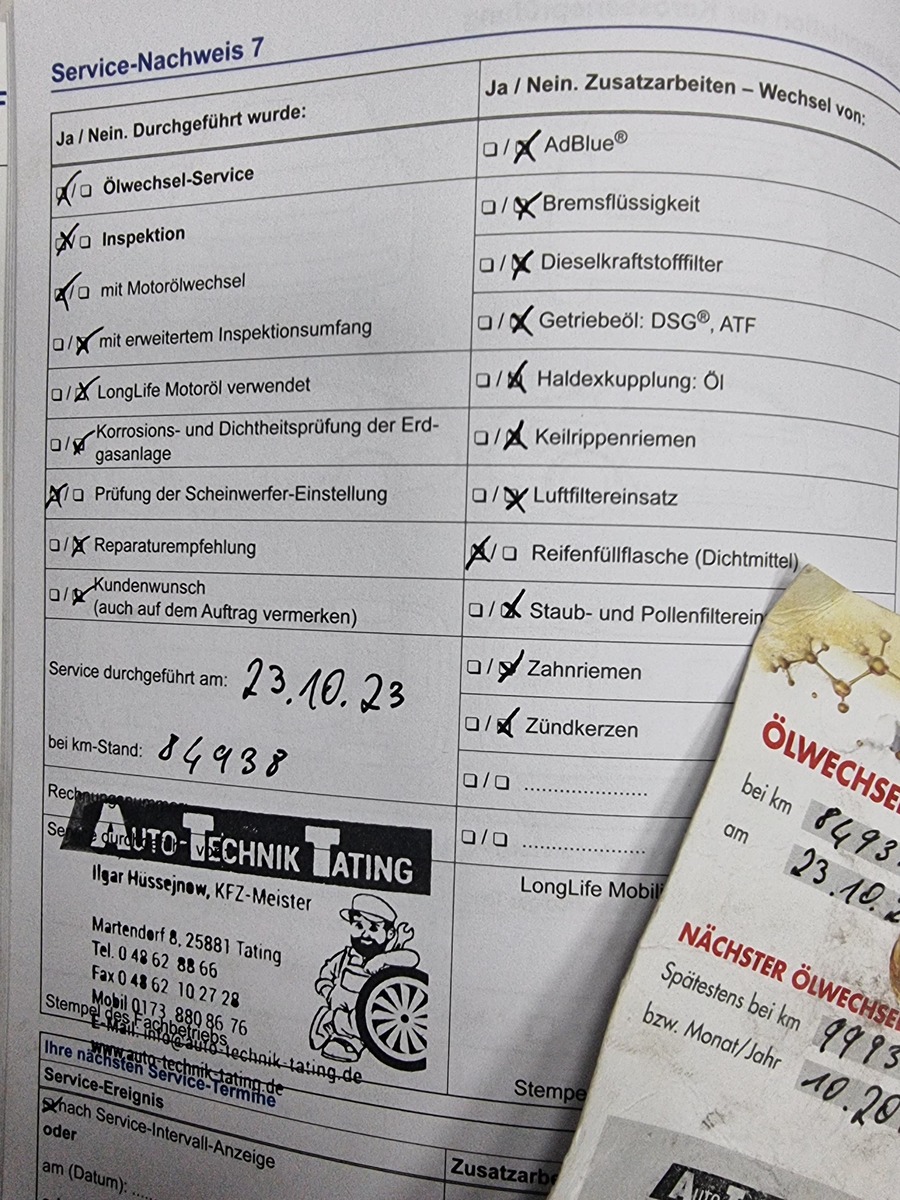 Service-Nachweis 7
Ja / Nein. Durchgeführt wurde:
Ölwechsel-Service
Inspektion
mit Motorölwechsel
mit erweitertem Inspektionsumfang
LongLife Motoröl verwendet
Korrosions- und Dichtheitsprüfung der Erd-
gasanlage
Prüfung der Scheinwerfer-Einstellung
Reparaturempfehlung
Kundenwunsch
(auch auf dem Auftrag vermerken)
Service durchgeführt am: 23.10.23
bei km-Stand: 84938
AUTO-TECHNIK TATING
Ilgar Hüssejnow, KFZ-Meister
Martendorf 8, 25881 Tating
Tel. 0 48 62 88 66
Fax 0 48 62 10 27 28
Mobil 0173 880 86 76
Stempel des Fachbetriebs
E-Mail: info@auto-technik-tating.de
www.auto-technik-tating.de
Ihre nächsten Service-Termine
Service-Ereignis
nach Service-Intervall-Anzeige
oder
am (Datum): .....
Ja / Nein. Zusatzarbeiten – Wechsel von:
AdBlue®
Bremsflüssigkeit
Dieselkraftstofffilter
Getriebeöl: DSG®, ATF
Haldexkupplung: Öl
Keilrippenriemen
Luftfiltereinsatz
Reifenfüllflasche (Dichtmittel)
Staub- und Pollenfilterein
Zahnriemen
Zündkerzen
LongLife Mobili
Stempe
Zusatzarbe
ÖLWECHSE
bei km 8493
am 23.10.2
NÄCHSTER ÖLWECHSE
Spätestens bei km 9993
bzw. Monat/Jahr 10.20